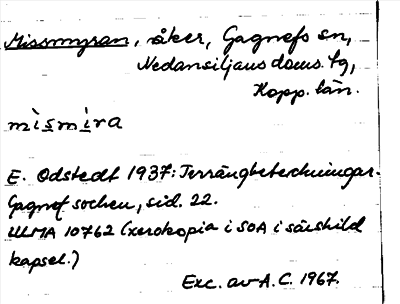 Missmyran, åker, Gagnefs sn,
Nedansiljans doms. tg,
Kopp. län.
mìsmìra
E. Odstedt 1937: Terrängbeteckningar.
Gagnef socken, sid. 22.
ULMA 10762 (xerokopia i SOA i särskild
kapsel.)
Exc. av A.C. 1967.